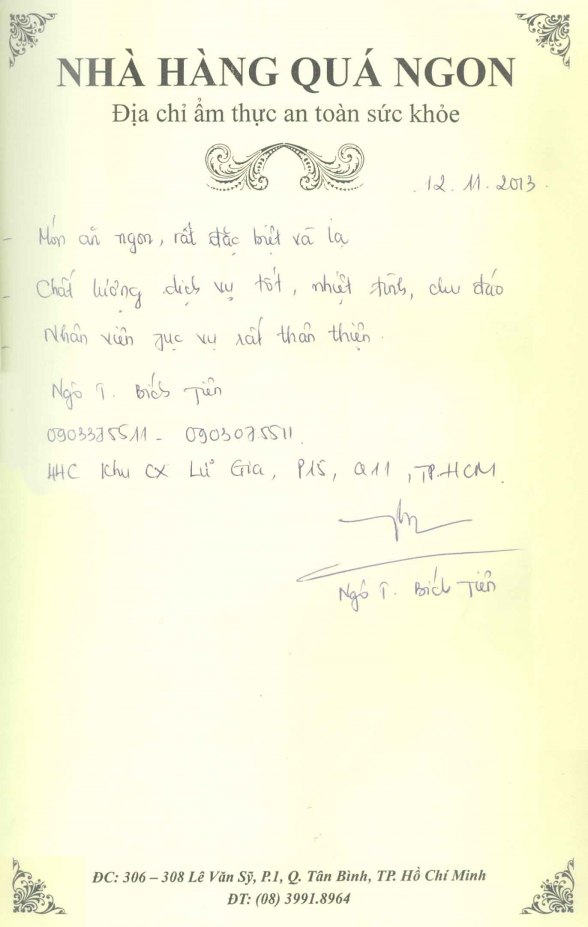 NHÀ HÀNG QUÁ NGON
Địa chỉ ẩm thực an toàn sức khỏe
12.11.2013.
- Món ăn ngon, rất đặc biệt và lạ
- Chất lượng dịch vụ tốt, nhiệt tình, chu đáo
- Nhân viên phục vụ rất thân thiện.
Ngô T. Bích Tiên
0903375511 - 0903075511.
44C Khu CX Lữ Gia, P15, Q11, TP.HCM.
Ngô T. Bích Tiên
ĐC: 306 – 308 Lê Văn Sỹ, P.1, Q. Tân Bình, TP. Hồ Chí Minh
ĐT: (08) 3991.8964